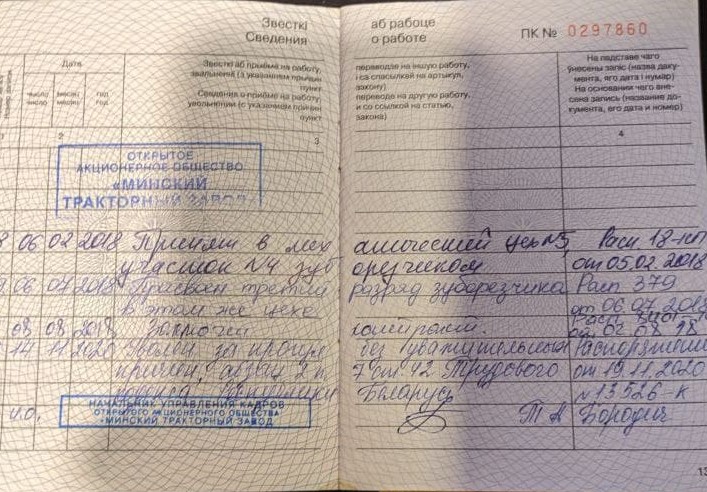 Звесткі
Сведения
аб рабоце
о работе
ПК № 0297860
Дата
число
число
месяц
год
год
Звесткі аб прыёме на работу,
звальненні (з указаннем прычын
пункт
Сведения о приёме на работу,
увольнении (с указанием причин
пункт
пераводзе на іншую работу,
і са спасылкай на артыкул,
закону)
переводе на другую работу,
и со ссылкой на статью,
закона)
На падставе чаго
ўнесены запіс (назва даку-
мента, яго дата і нумар)
На основании чего вне-
сена запись (название до-
кумента, его дата и номер)
2
3
4
ОТКРЫТОЕ
АКЦИОНЕРНОЕ ОБЩЕСТВО
«МИНСКИЙ
ТРАКТОРНЫЙ ЗАВОД»
06 02 2018 Принят в мех анический цех №5 Расп 18-
участок №4 зуб орезчиком от 05.02.2018
06 07 2018 Присвоен третий разряд зуборезчика Расп 379
в этом же цехе от 06 07 2018
08 08 2018
02 08 18
14 11 2020 Уволен за прогул без уважительных Распоряжение
причин, абзац 2 п. 7 ст 42 Трудового от 19.11.2020
кодекса Республики Беларусь №13526-К
НАЧАЛЬНИК УПРАВЛЕНИЯ КАДРОВ
ОТКРЫТОГО АКЦИОНЕРНОГО ОБЩЕСТВА
«МИНСКИЙ ТРАКТОРНЫЙ ЗАВОД
и.о. Т А Бородич
13